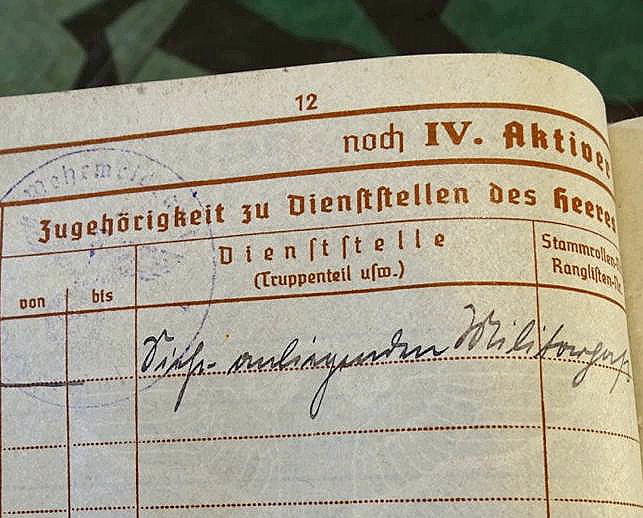 12
noch IV. Aktiver
Zugehörigkeit zu Dienststellen des Heeres
von
bis
Dienststelle
(Truppenteil usw.)
Stammrollen-
Ranglisten-Nr.
Siehe anliegenden Militärpaß